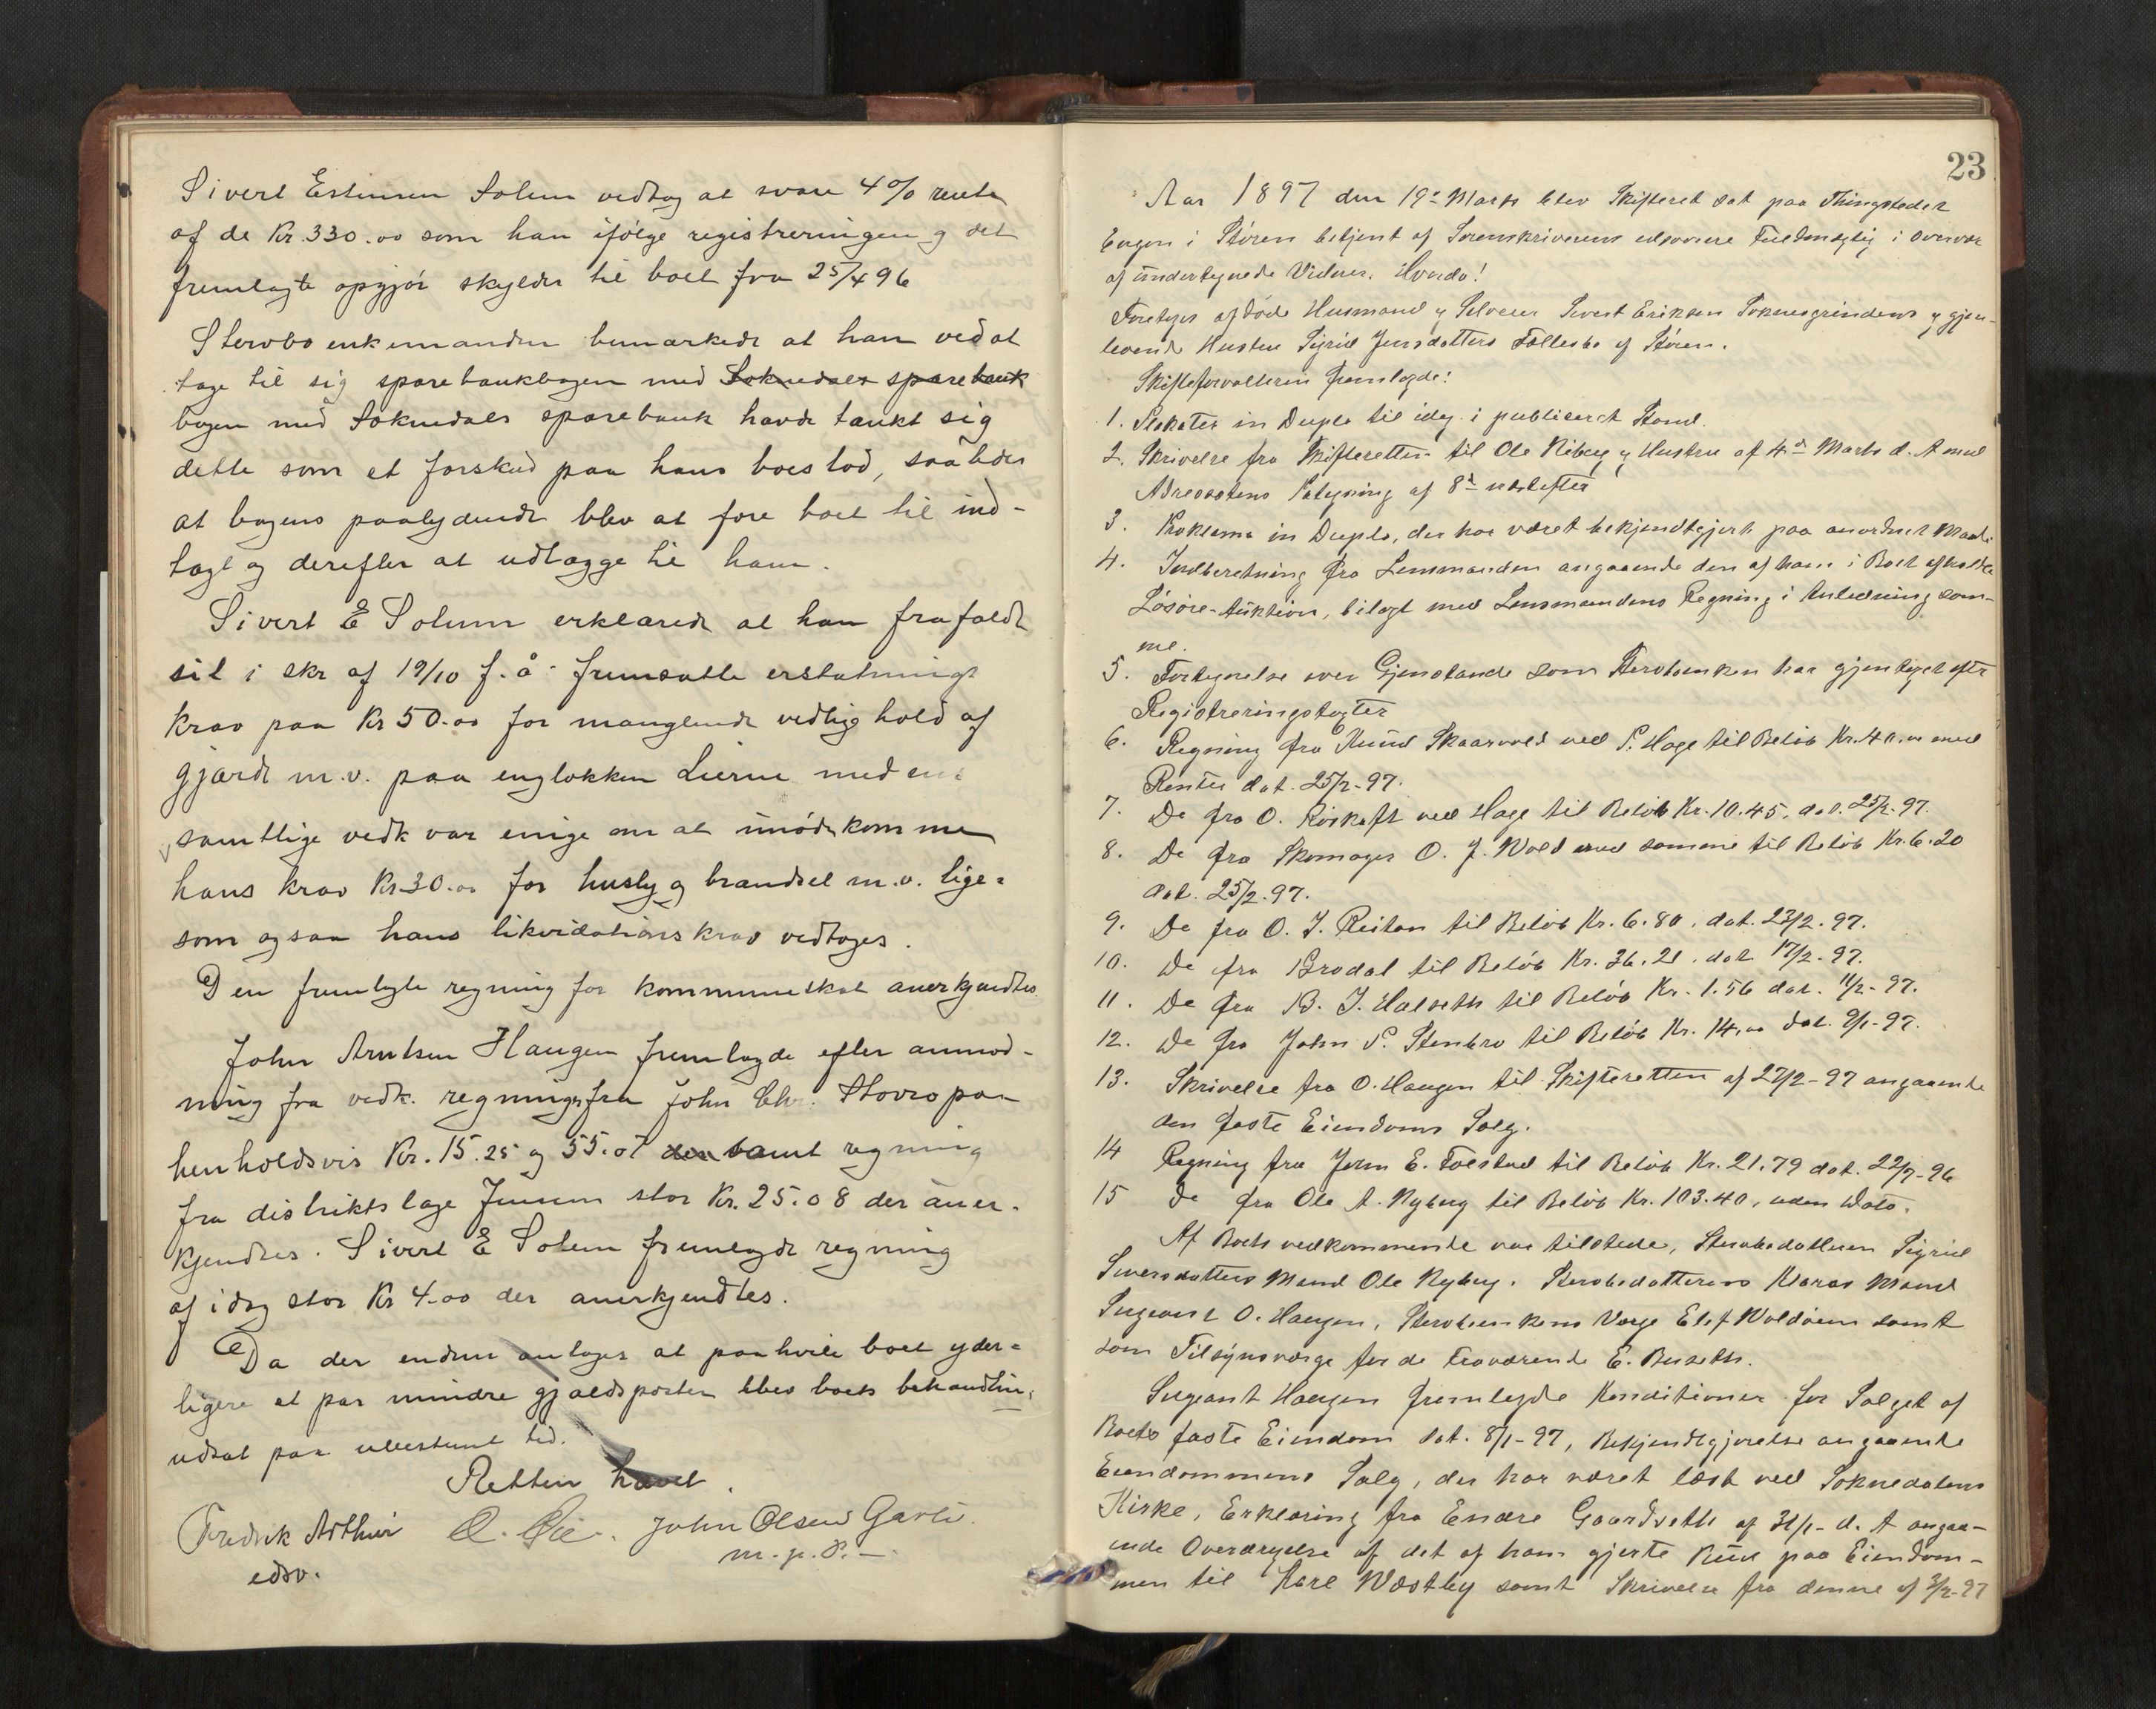 Sivert Estensen Solem vedtog at svare 4 % rente
af de Kr. 330.00 som han ifølge registreringen og det
fremlagte opgjør skylder til boet fra 25/4 96
Stervboenkemanden bemærkede at han ved at
tage til sig sparebankbogen med Soknedals sparebank
bogen med Soknedals sparebank havde tænkt sig
dette som et forskud paa hans boeslod, saaledes
at bogens paalydende blev at føre boet til ind-
tægt og derefter at udlægge til ham.
Sivert E Solem erklærede at han frafaldt
sit i skr af 19/10 f. å. fremsatte erstatnings
krav paa Kr 50.00 for manglende vedligehold af
gjærde m.v. paa engløkken Lierne meden
samtlige vedk var enige om at imødekomme
hans krav Kr 30.00 for husly og brændsel m.v. lige-
som ogsaa hans likvidationskrav vedtoges.
Den fremlagte regning for kommuneskat anerkjendtes.
John Arntsen Haugen fremlagde efter anmod-
ning fra vedk. regninger fra John Chr. Stovro paa
henholdsvis Kr. 15.25 og 55.07 der samt regning
fra distriktslæge Jenssen stor Kr. 25.08 der aner-
kjendtes. Sivert E Solem fremlagde regning
af idag stor Kr 4.00 der anerkjendtes.
Da der endnu antoges at paahvile boet yder-
ligere et par mindre gjældsposter blev boets behandling
udsat paa ubestemt tid.
Retten hævet.
Fredrik Arthur O. Øie. John Olsen Garli
edsv. m.p.P.
23
Aar 1897 den 19de Marts blev Skifteret sat paa Thingstedet
Engen i Støren betjent af Sorenskriverens edsvorne Fuldmægtig i Overvær
af undertegnede Vidner. Hvorda!
Foretages afdøde Husmand og Selveier Sivert Eriksen Soknesgrindens og gjen-
levende Hustru Sigrid Jensdatters Fællesbo af Støren.
Skifteforvalteren fremlagde:
1. Plakater in Duplo til idag i publiceret Stand.
2. Skrivelse fra Skifteretten til Ole Nyberg og Hustru af 4de Marts d. A med
Adressatens Paategning af 8de næstefter
3. Proklama in Duplo, der har været bekjendtgjort paa anordnet Maade.
4. Indberetning fra Lensmanden angaaende den af ham i Boet afholdte
Løsøre-Auktion, bilagt med Lensmandens Regning i Anledning sam-
me.
5. Fortegnelse over Gjenstande som Stervboenken har gjentaget efter
Registreringstaxter
6. Regning fra Knud Skaarvold ved P. Hage til Beløb Kr. 40.00 med
Renter dat. 25/2-97.
7. Do fra O. Røskaft ved Hage til Beløb Kr. 10.45, dat. 25/2-97.
8. Do fra Skomager O. J. Wold ved samme til Beløb Kr. 6.20
dat. 25/2.97.
9. Do fra O. J. Reitan til Beløb Kr. 6.80, dat. 23/2.97.
10. Do fra Brodal til Beløb Kr. 36.21. dat 17/2-97.
11. Do fra B. J. Halseth til Beløb Kr. 1.56 dat. 11/2-97.
12. Do fra John P. Stenbro til Beløb Kr. 14.00 dat. 9/1-97.
13. Skrivelse fra O. Haugen til Skifteretten af 27/2-97 angaaende
den faste Eiendoms Salg.
14 Regning fra John E. Folstad til Beløb Kr. 21.79 dat. 22/7-96
15 Do fra Ole A. Nyberg til Beløb Kr. 103.40, uden Dato.
Af Boets vedkommende var tilstede, Stervbodatteren Sigrid
Siversdatters Mand Ole Nyberg. Stervbodatterens Maras Mand
Sergeant O. Haugen, Stervboenkens Værge Elef Woldøien samt
som Tilsynsværge for de fraværende E. Buseth.
Sergeant Haugen fremlagde Konditioner for Salget af
Boets faste Eiendom dat. 8/1-97, Bekjendtgjørelse angaaende
Eiendommens Salg, der har været læst ved Soknedalens
Kirke, Erklæring fra Endre Gaardseth af 31/1- d. A angaa-
ende Overdragelse af det af ham gjorte Bud paa Eiendom-
men til Karl Wæstby samt Skrivelse fra denne af 3/2-97